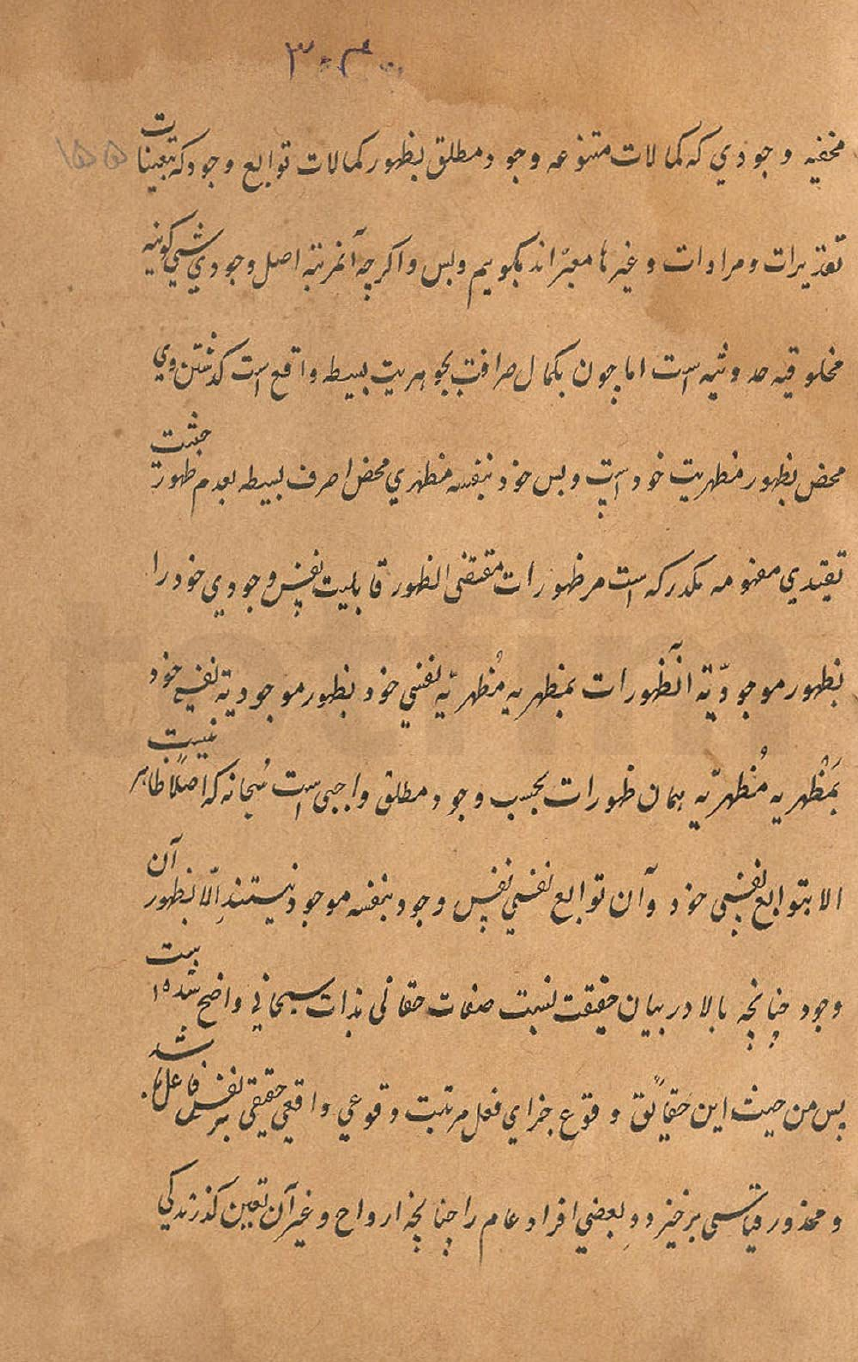 ٣٠٤
١٥٥
مخفیه وجودي که کمالات متنوعه وجود مطلق بظهور کمالات توابع وجود که تعینات
تعزیرات و مرادات و غیرها معبراند بکوییم وبس واکرچه آنمرتبه اصل وجودي شیي کونیه
مخلوقیه حدوثیه است اما چون بکمال صرافت بجوهریت بسیطه واقع است کذشتن وي
محض بظهور مظهریت خود است وبس خود بنفسه مظهري محض صرف بسیطه بعدم ظهور جثت
تقیدي مفهومه مدرکه است مر ظهورات مقتضی الظهور قابلیت نفس وجودي خود را
بظهور موجودیّة آنظهورات بمظهریه مُظهریّه نفسي خود بظهور موجودیة نفسي خود
بمَظهریه مُظهریّه همان ظهورات بحسب وجود مطلق واجبی است سُبحانه که اصلاً ظاهر نیست
الا بتوابع نفسي خود وآن توابع نفسي نفس وجود بنفسه موجود نیستند اِلّا بظهور آن
وجود چنانچه بالا در بیان حقیقت نسبت صفات حقانی بذات سبحاني واضح شده است
پس من حیث این حقایق وقوع جزاي فعل مرتبت وقوعي واقعي حقیقی بر نفس فاعلها شد
و محذور قیاسي برخیزد و بعضي افراد عام را چنانچه ارواح و غیر آن تعین کذرندکي